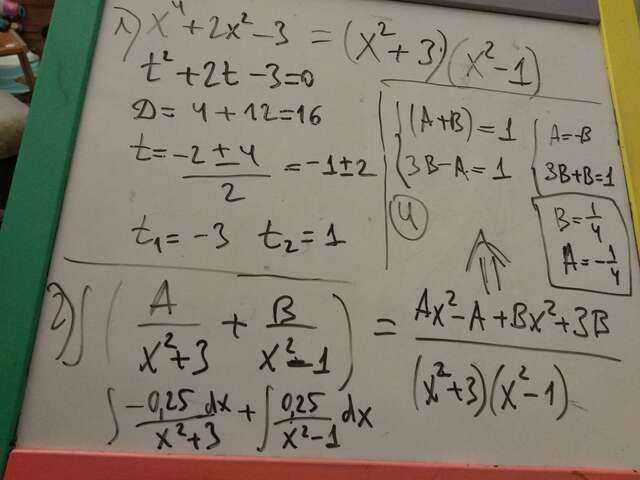 1) x⁴ + 2x² - 3 = (x² + 3)(x² - 1)
t² + 2t - 3 = 0
D = 4 + 12 = 16
t = (-2 ± 4)/2 = -1 ± 2
t₁ = -3 t₂ = 1
{ (A+B) = 1 { A = -B
{ 3B - A = 1 { 3B + B = 1
4 B = 1/4
A = -1/4
2) ∫ ( A/(x² + 3) + B/(x² - 1) ) = (Ax² - A + Bx² + 3B)/((x² + 3)(x² - 1))
∫ (-0,25 dx)/(x² + 3) + ∫ 0,25/(x² - 1) dx